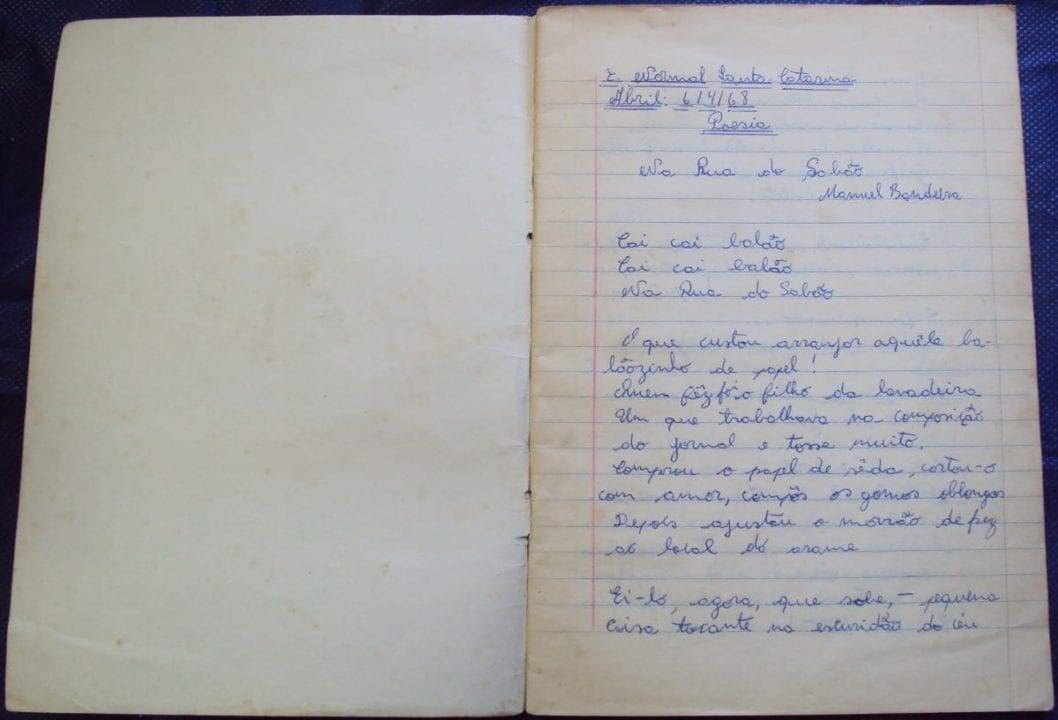 E. Normal Santa Catarina
Abril: 6/4/68
Poesia
Na Rua do Sabão
Manuel Bandeira
Cai cai balão
Cai cai balão
Na Rua do Sabão
O que custou arranjar aquêle ba-
lãozinho de papel!
Quem fêz foi o filho da lavadeira
Um que trabalhava na composição
do jornal e tosse muito.
Comprou o papel de sêda, cortou-o
com amor, compôs os gomos oblongos
Depois ajustou o morrão de pez
ao local do arame
Ei-lo, agora, que sobe, - pequena
Coisa tocante na escuridão do céu